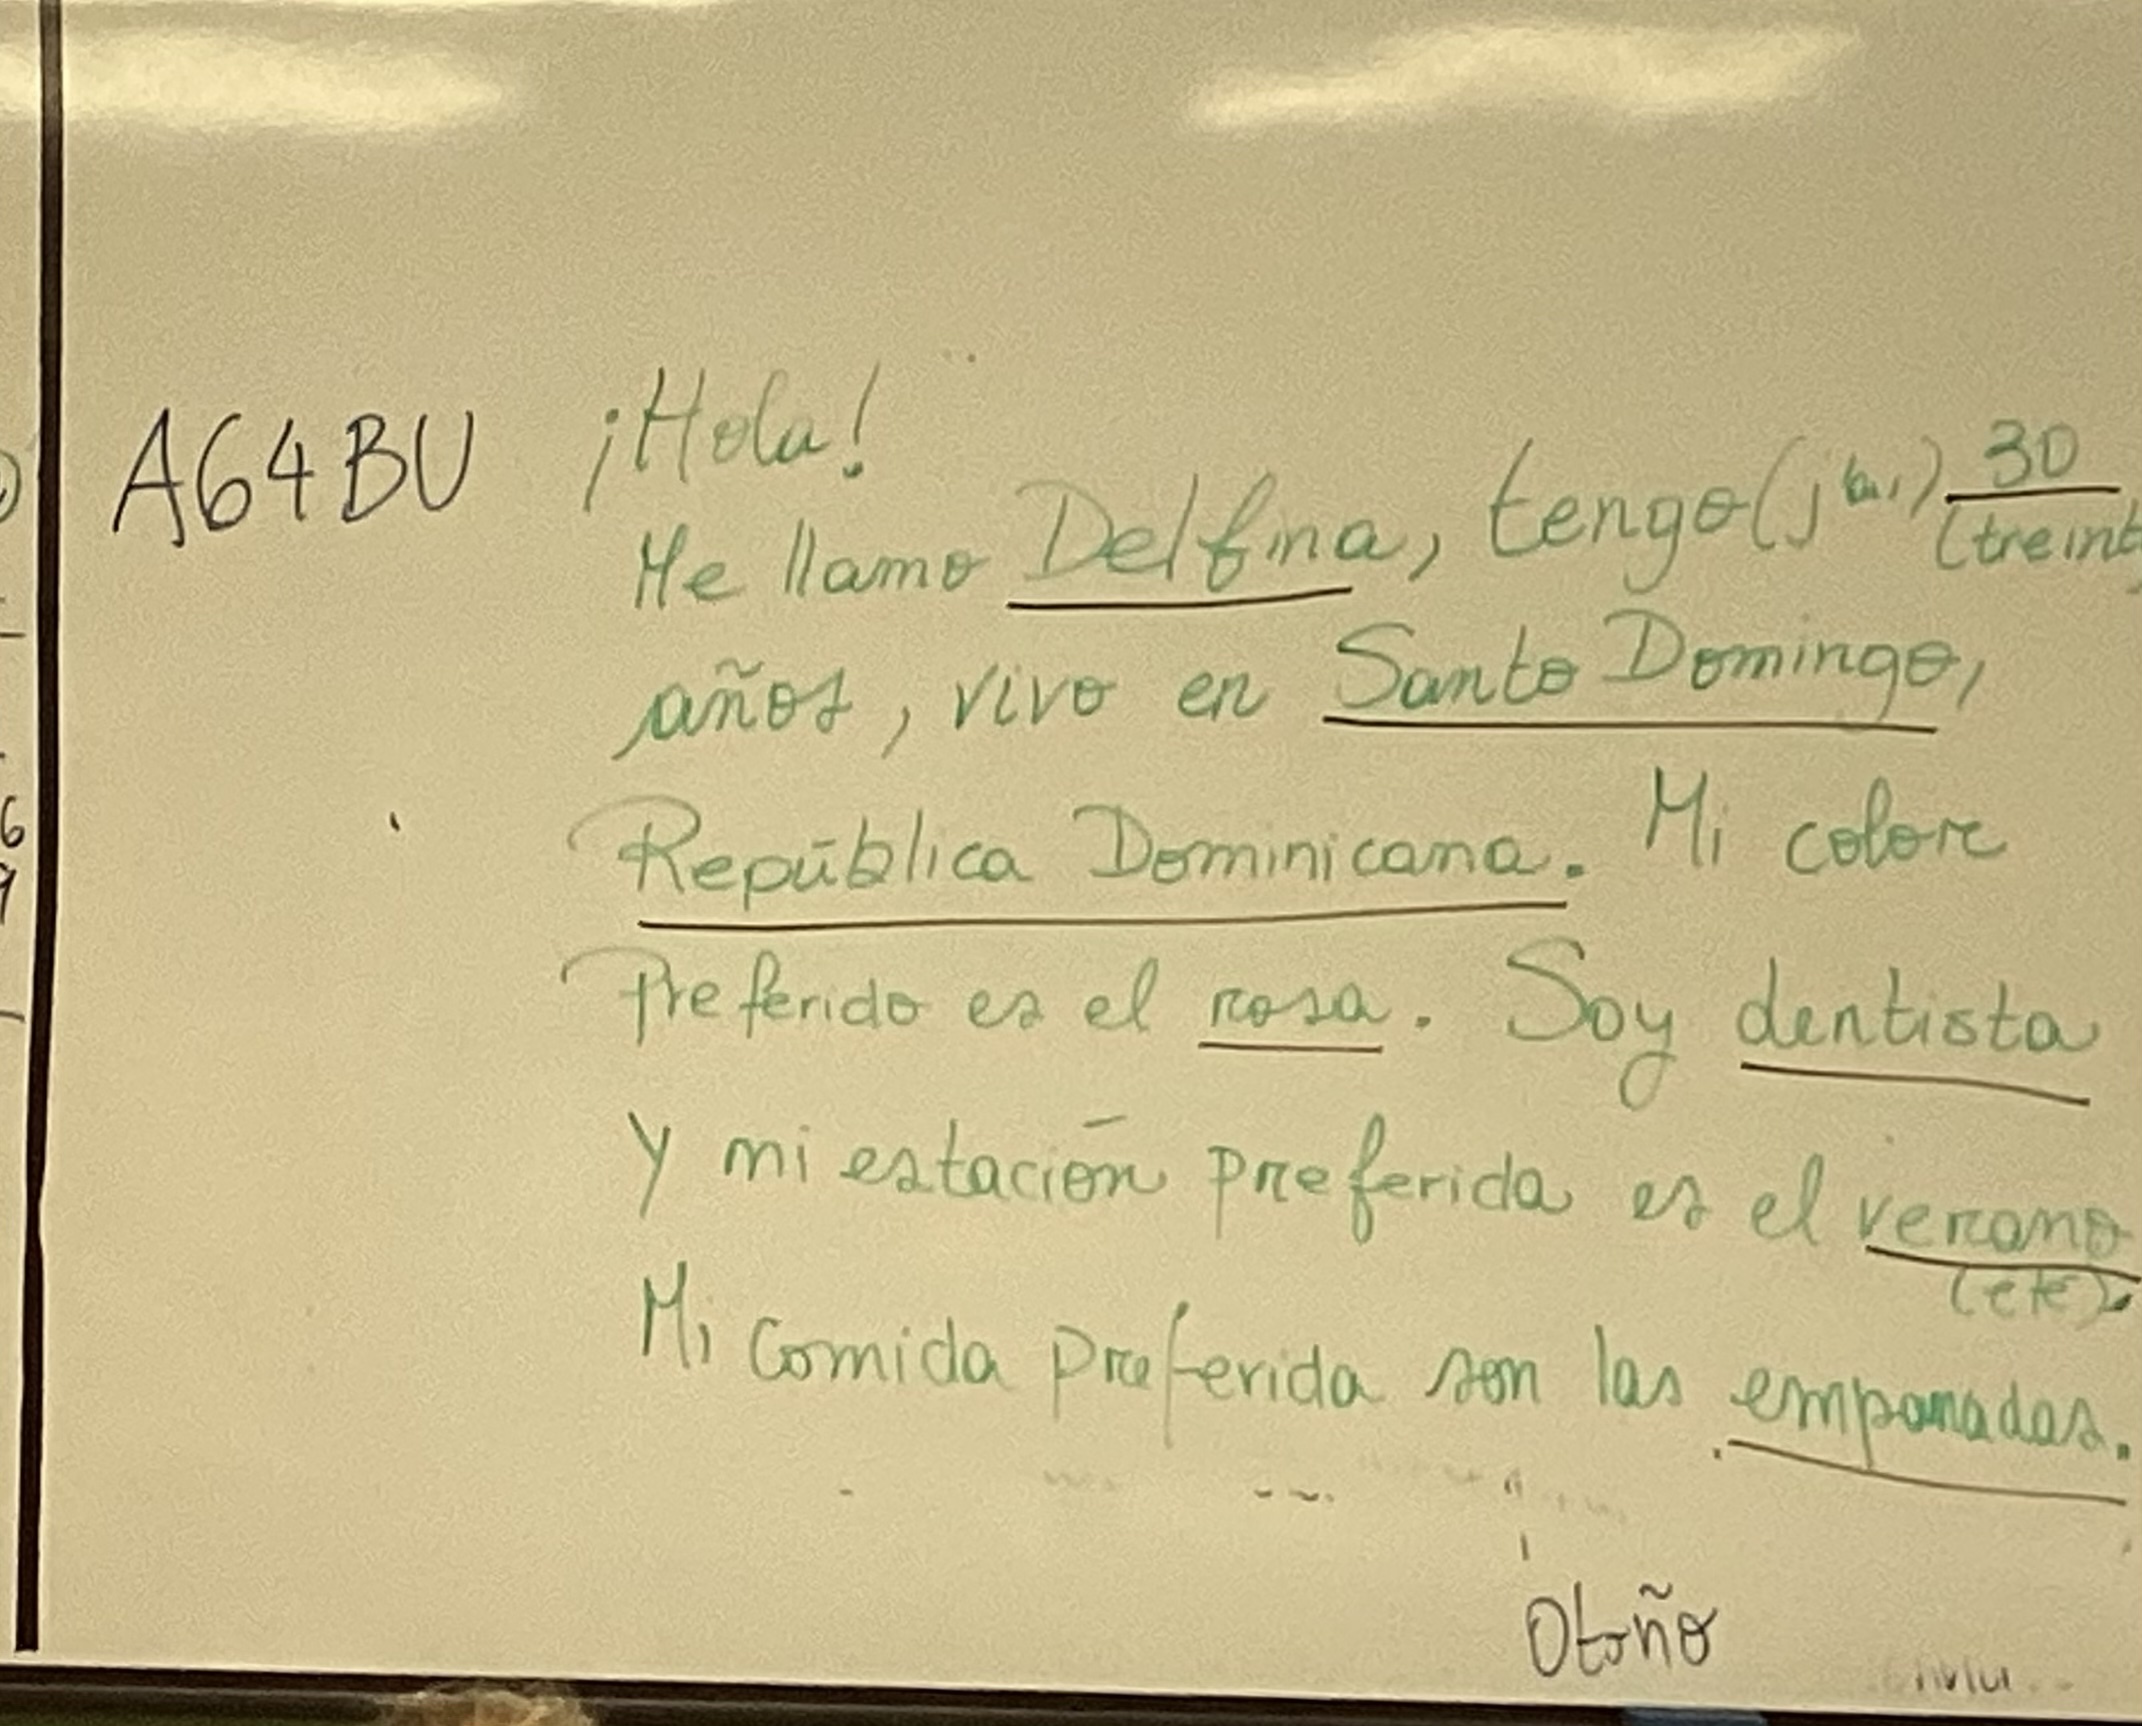 A64BU
¡Hola!
Me llamo Delfina, tengo (j'ai) 30
(treint
años, vivo en Santo Domingo,
República Dominicana. Mi color
Preferido es el rosa. Soy dentista
Y mi estación preferida es el verano
(eté).
Mi comida preferida son las empanadas.
Otoño